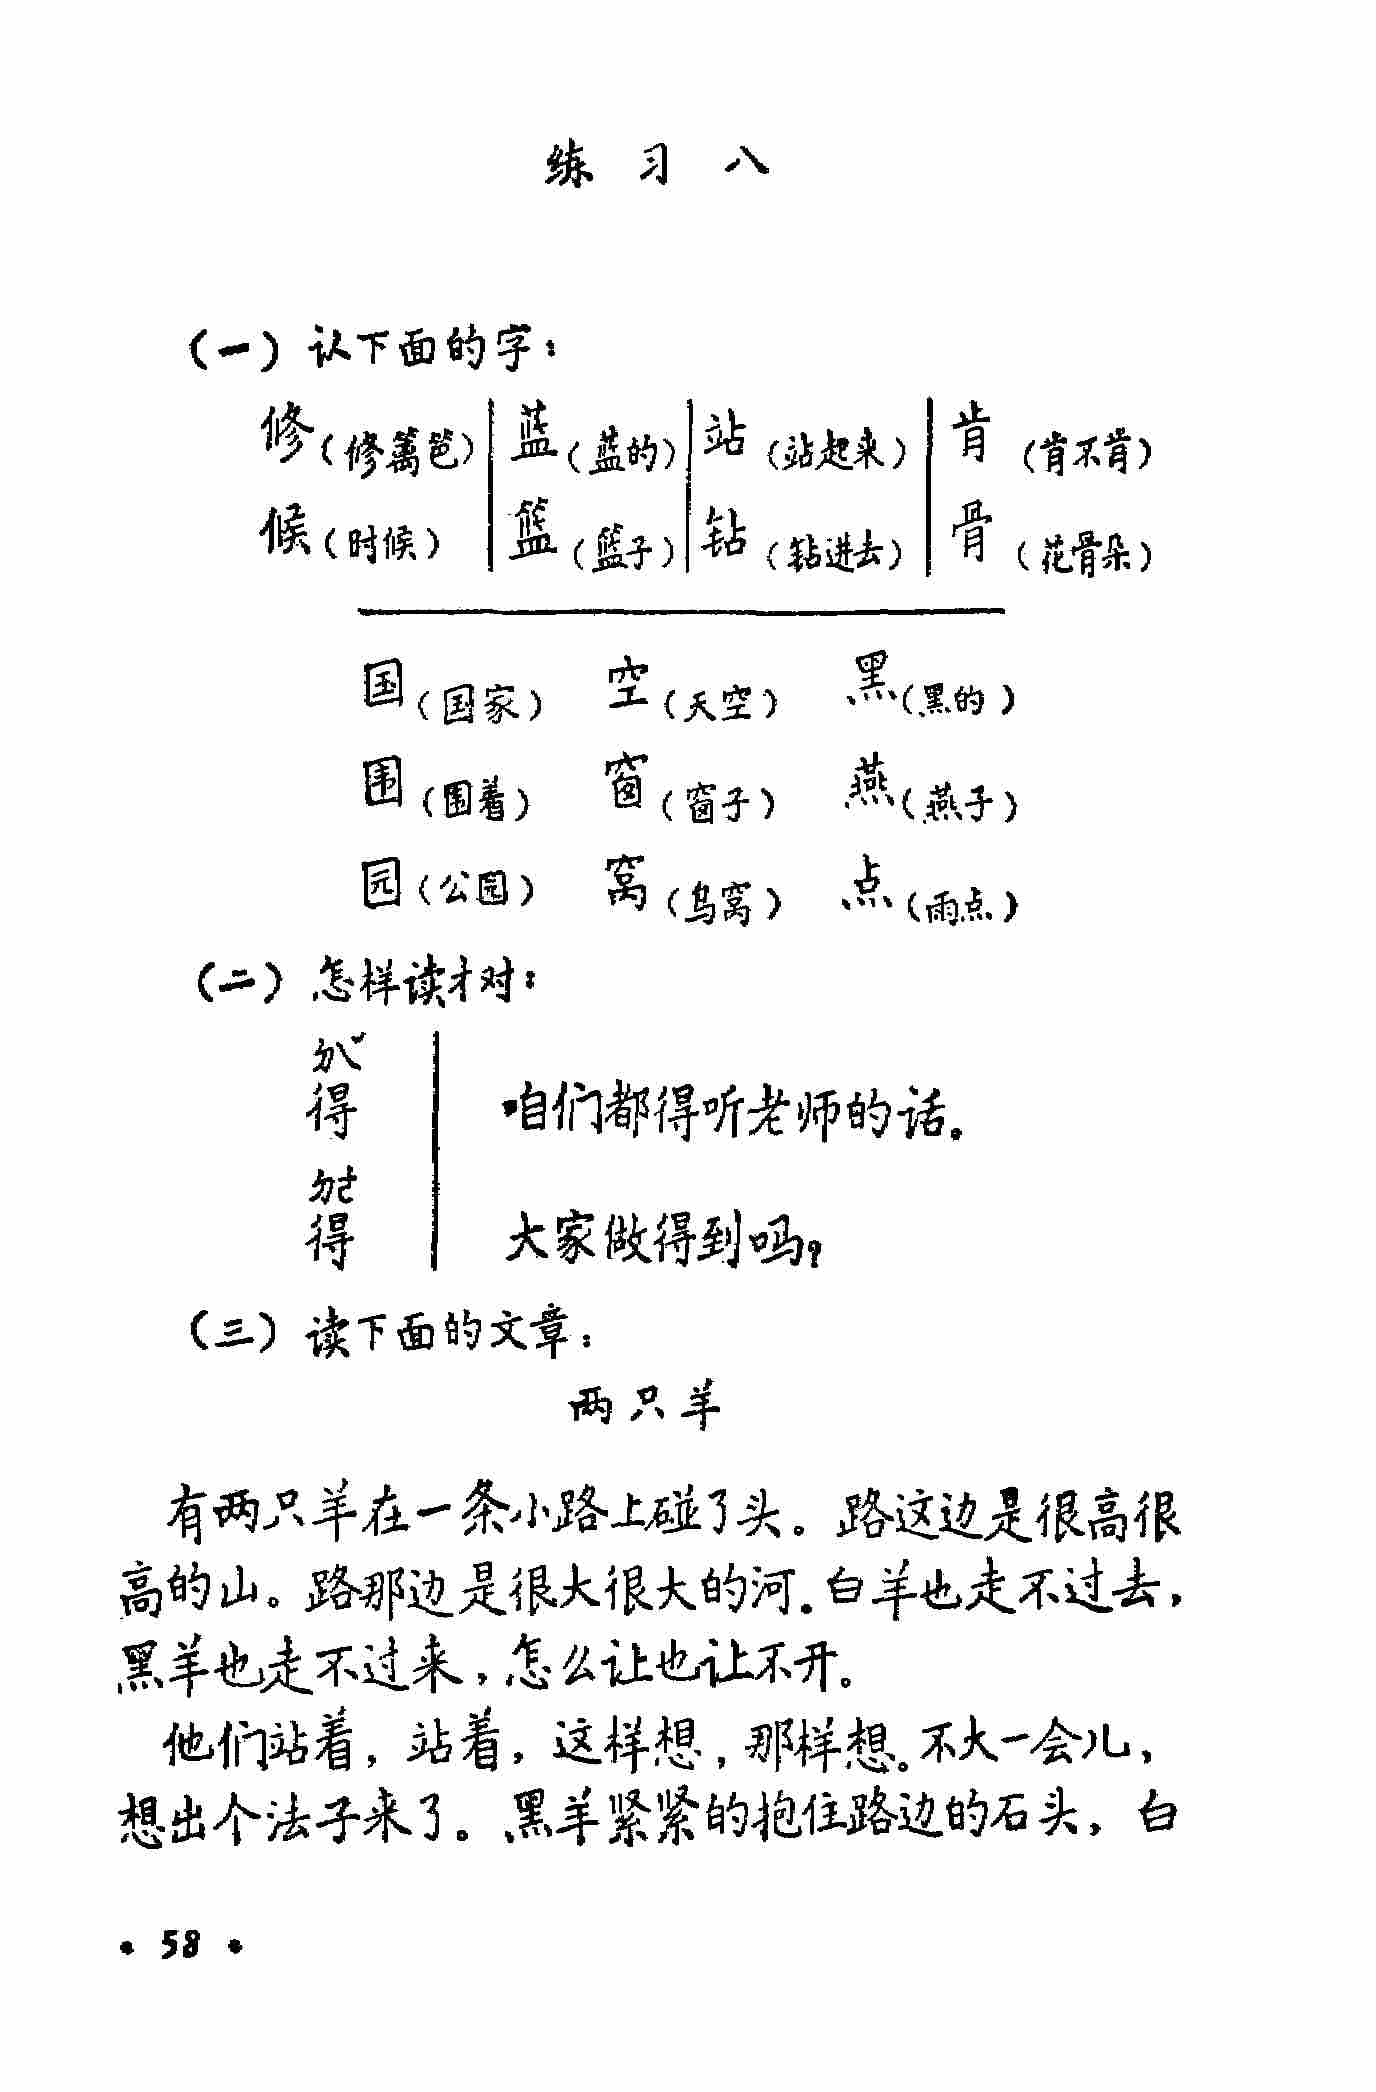 练习八
(一) 认下面的字：
修(修篱笆) 蓝(蓝的) 站(站起来) 肯(肯不肯)
候(时候) 篮(篮子) 钻(钻进去) 骨(花骨朵)
国(国家) 空(天空) 黑(黑的)
围(围着) 窗(窗子) 燕(燕子)
园(公园) 窝(鸟窝) 点(雨点)
(二) 怎样读才对：
ㄉㄟˇ
得 咱们都得听老师的话。
ㄉㄜ
得 大家做得到吗?
(三) 读下面的文章：
两只羊
有两只羊在一条小路上碰了头。路这边是很高很
高的山。路那边是很大很大的河.白羊也走不过去，
黑羊也走不过来，怎么让也让不开。
他们站着，站着，这样想，那样想。不大一会儿，
想出个法子来了。黑羊紧紧的抱住路边的石头，白
• 58 •